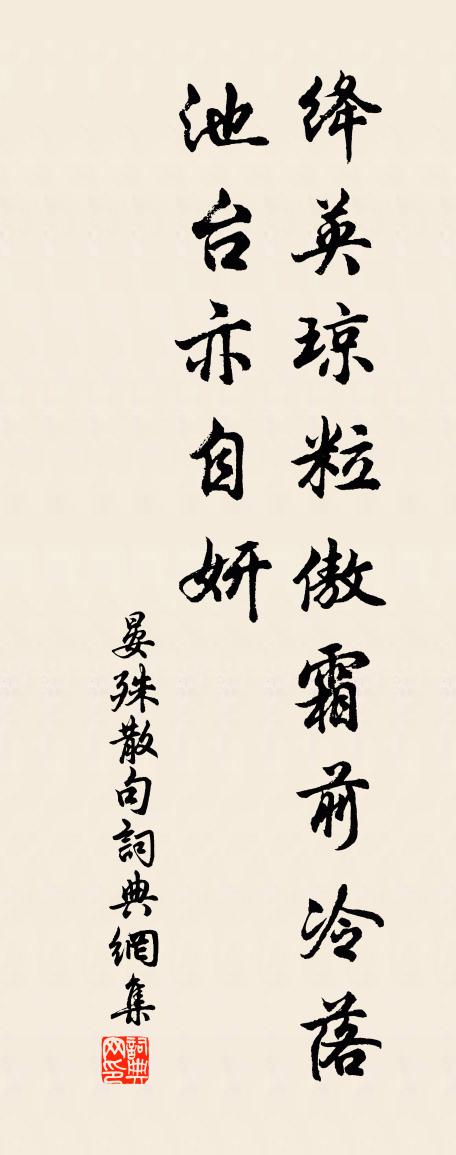 绛英琼粒傲霜前冷落
池台亦自妍
晏殊散句詞典網集
詞典网印